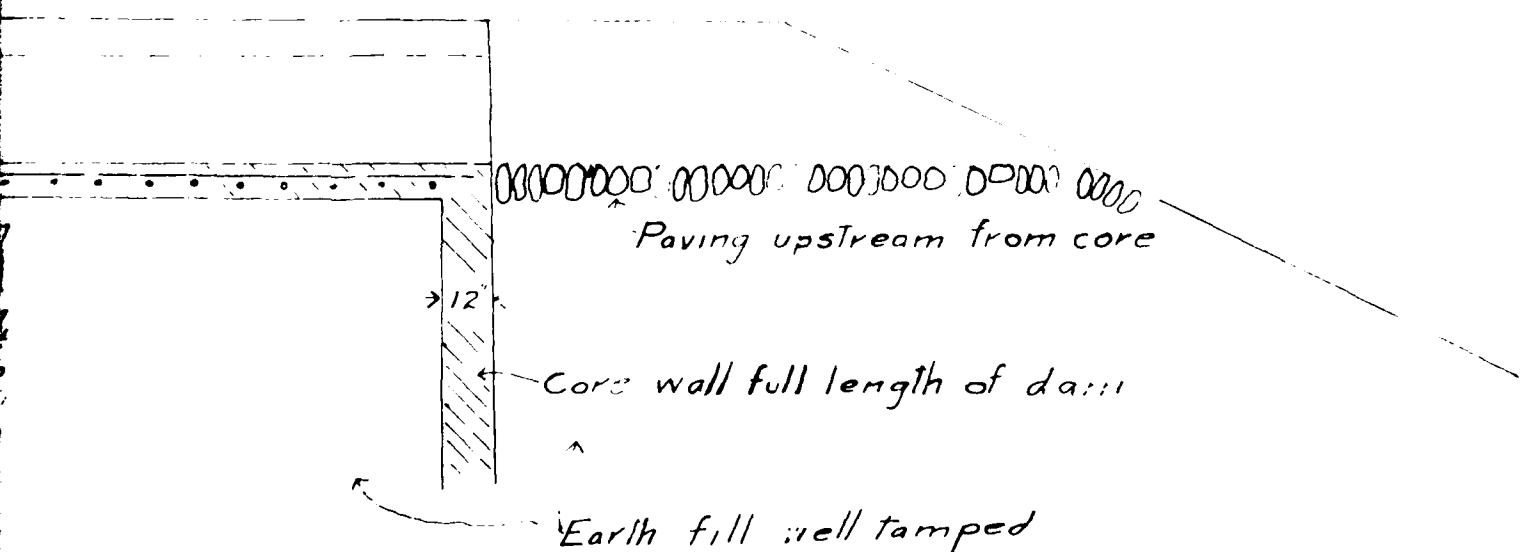 Paving upstream from core
12"
Core wall full length of dam
Earth fill well tamped